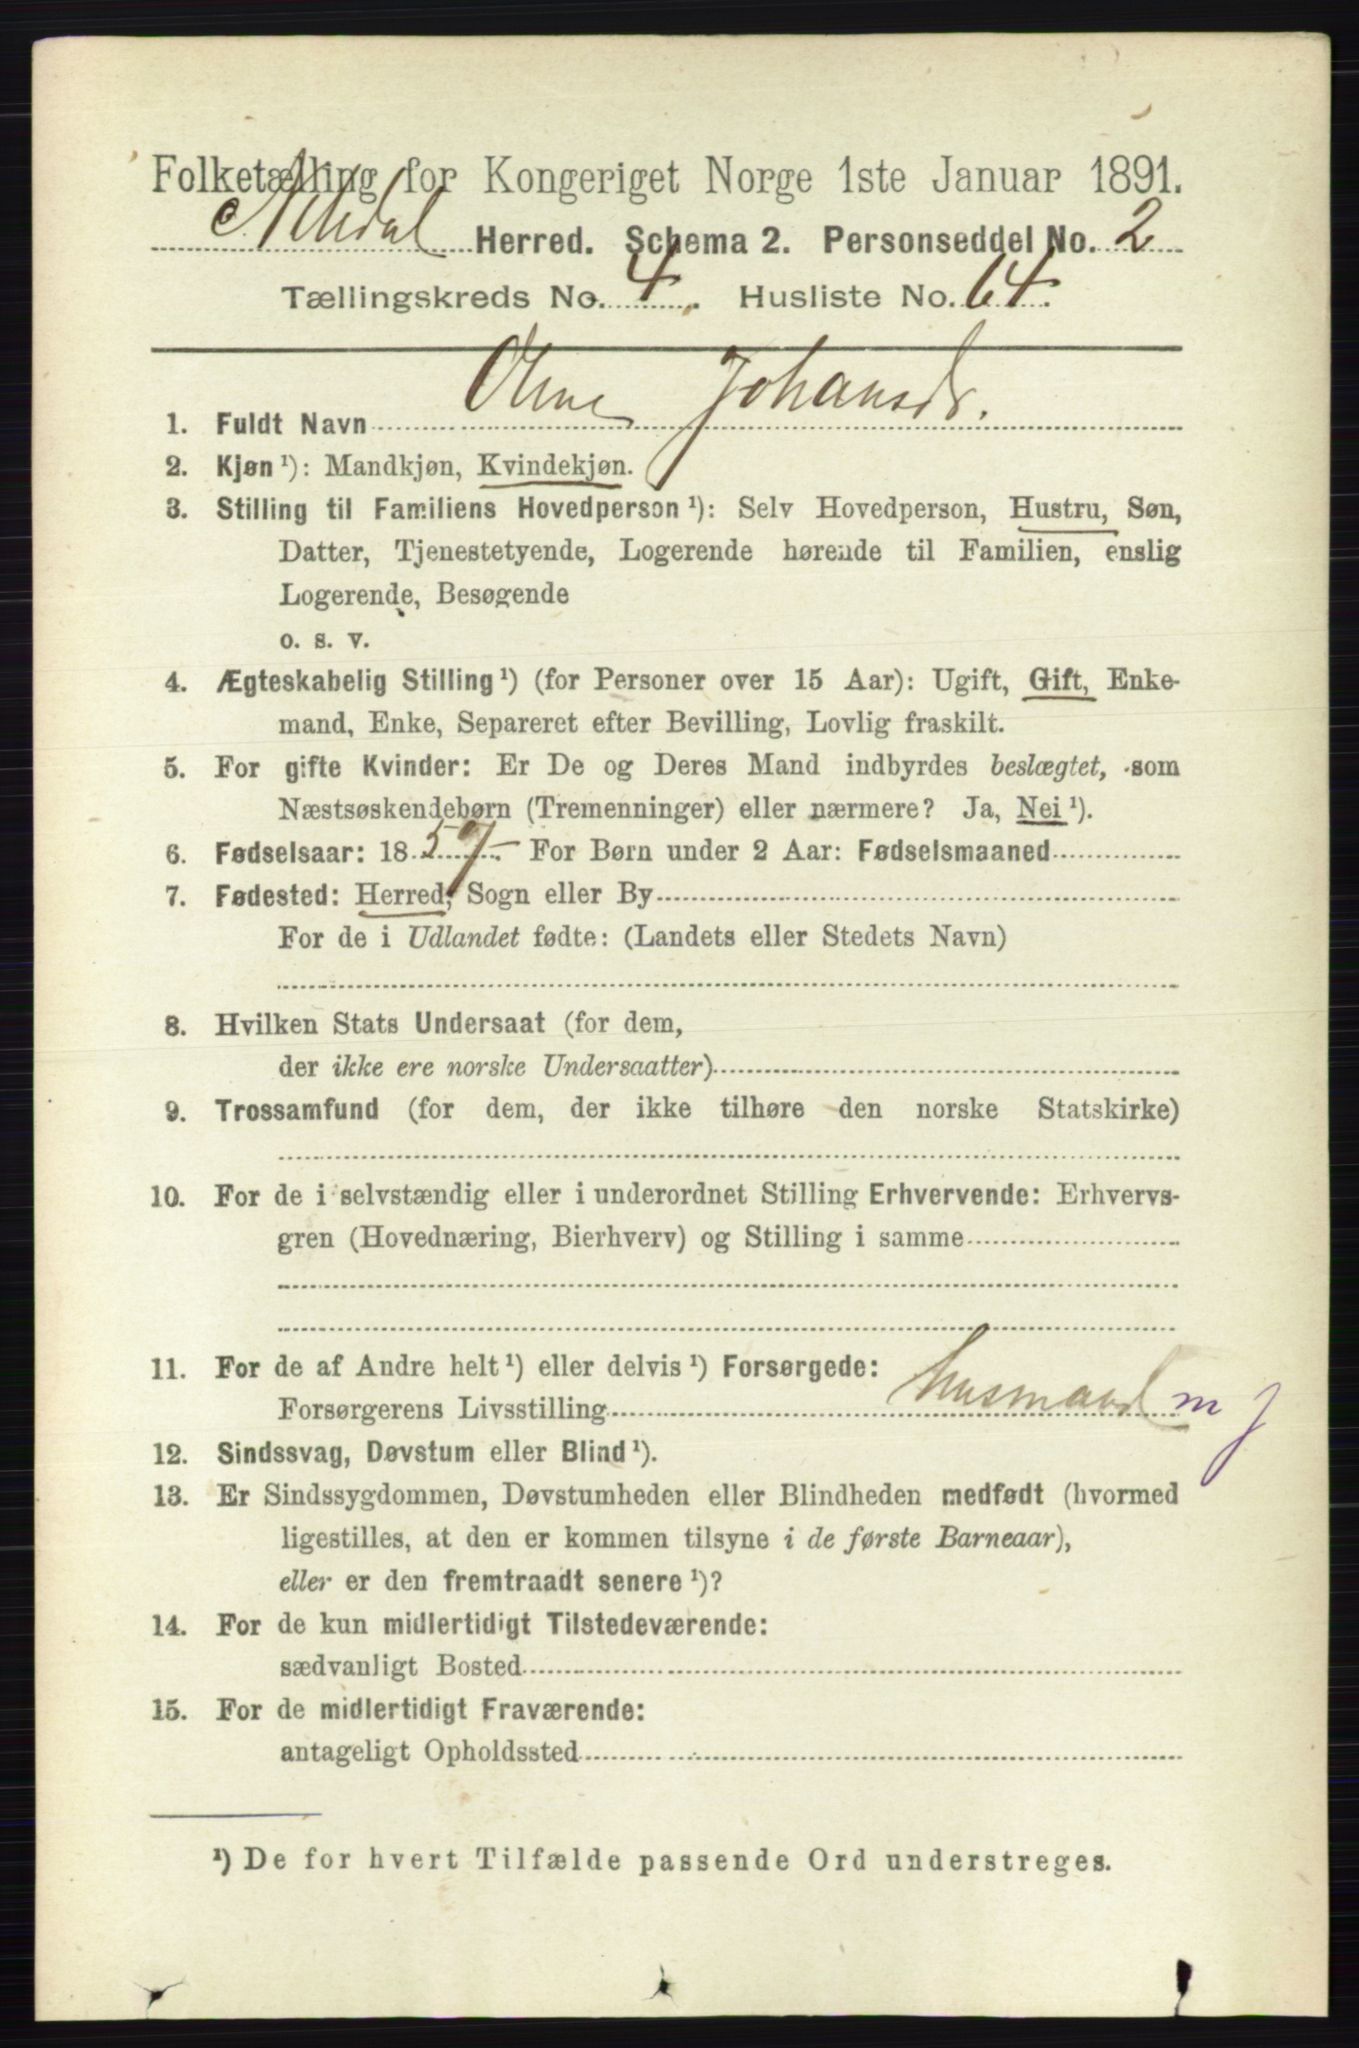 Folketælling for Kongeriget Norge 1ste Januar 1891.
Herred. Schema 2. Personseddel No. 2
Tællingskreds No. 4. Husliste No. 64.
1. Fuldt Navn Johansdr.
2. Kjøn ¹): Mandkjøn, Kvindekjøn.
3. Stilling til Familiens Hovedperson ¹): Selv Hovedperson, Hustru, Søn,
Datter, Tjenestetyende, Logerende hørende til Familien, enslig
Logerende, Besøgende
o. s. v.
4. Ægteskabelig Stilling ¹) (for Personer over 15 Aar): Ugift, Gift, Enke-
mand, Enke, Separeret efter Bevilling, Lovlig fraskilt.
5. For gifte Kvinder: Er De og Deres Mand indbyrdes beslægtet, som
Næstsøskendebørn (Tremenninger) eller nærmere? Ja, Nei ¹).
6. Fødselsaar: 1857 For Børn under 2 Aar: Fødselsmaaned
7. Fødested: Herred, Sogn eller By
For de i Udlandet fødte: (Landets eller Stedets Navn)
8. Hvilken Stats Undersaat (for dem,
der ikke ere norske Undersaatter)
9. Trossamfund (for dem, der ikke tilhøre den norske Statskirke)
10. For de i selvstændig eller i underordnet Stilling Erhvervende: Erhvervs-
gren (Hovednæring, Bierhverv) og Stilling i samme
11. For de af Andre helt ¹) eller delvis ¹) Forsørgede:
Forsørgerens Livsstilling husmand m j
12. Sindssvag, Døvstum eller Blind ¹).
13. Er Sindssygdommen, Døvstumheden eller Blindheden medfødt (hvormed
ligestilles, at den er kommen tilsyne i de første Barneaar),
eller er den fremtraadt senere ¹)?
14. For de kun midlertidigt Tilstedeværende:
sædvanligt Bosted
15. For de midlertidigt Fraværende:
antageligt Opholdssted
¹) De for hvert Tilfælde passende Ord understreges.